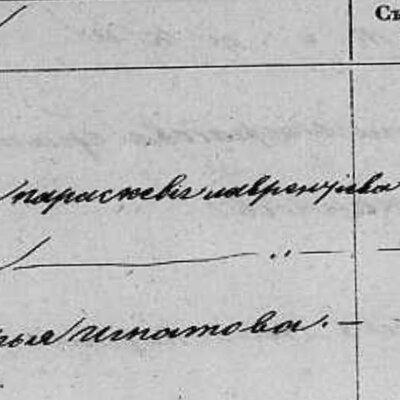 Съ
Параскевiя Лаврентiева
Игнатова. —